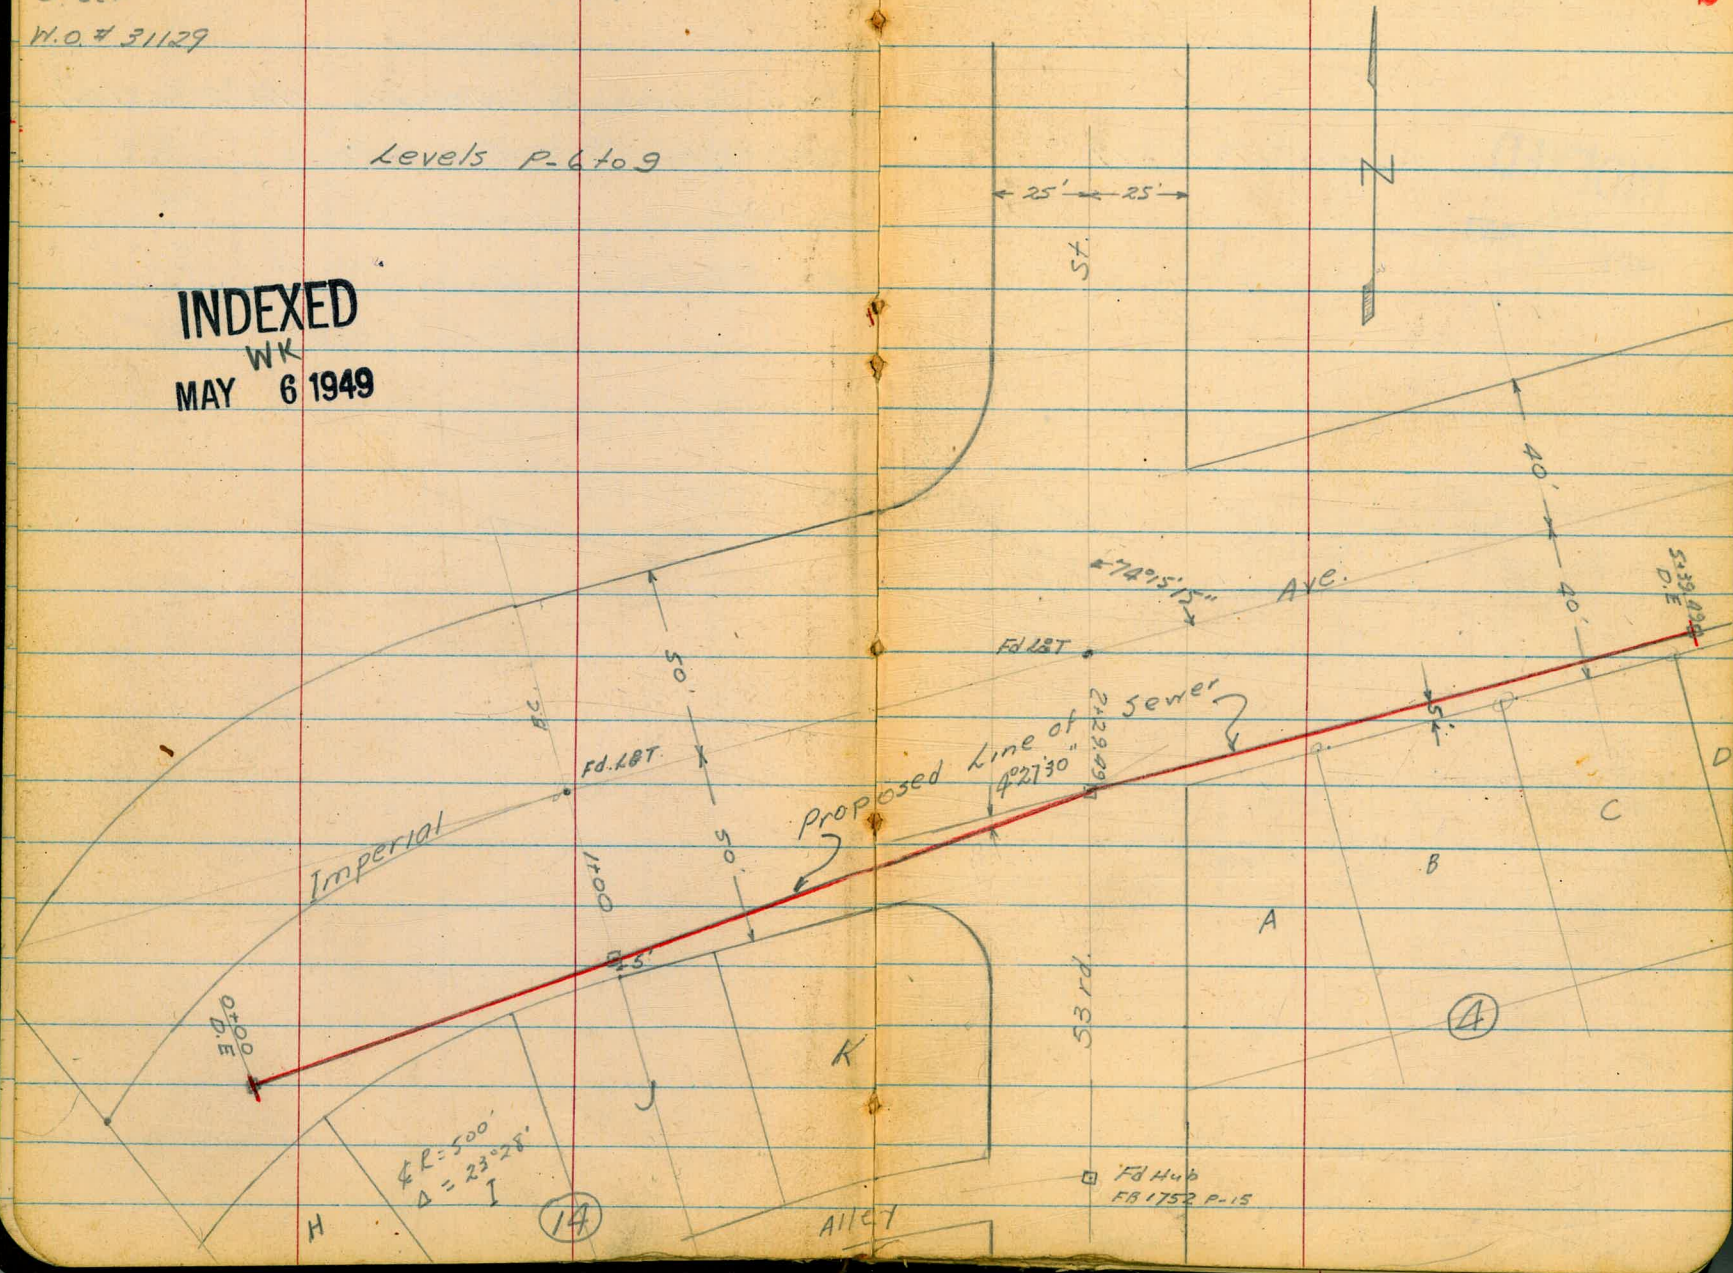 W.O. # 31129
Levels P-6 to 9
INDEXED
WK
MAY 6 1949
25' 25'
St.
N
40'
40'
74°15'15"
Ave.
5+39.49
D.E
Fd L&T
50'
Fd. L&T.
2+29.49
Proposed Line of Sewer
4°27'30"
5'
Imperial
50'
1+00
5'
0+00
D.E
A
B
C
D
4
53 rd.
K
J
℄ R=500'
Δ = 23°28'
I
H
14
Alley
Fd Hub
FB 1752 P-15